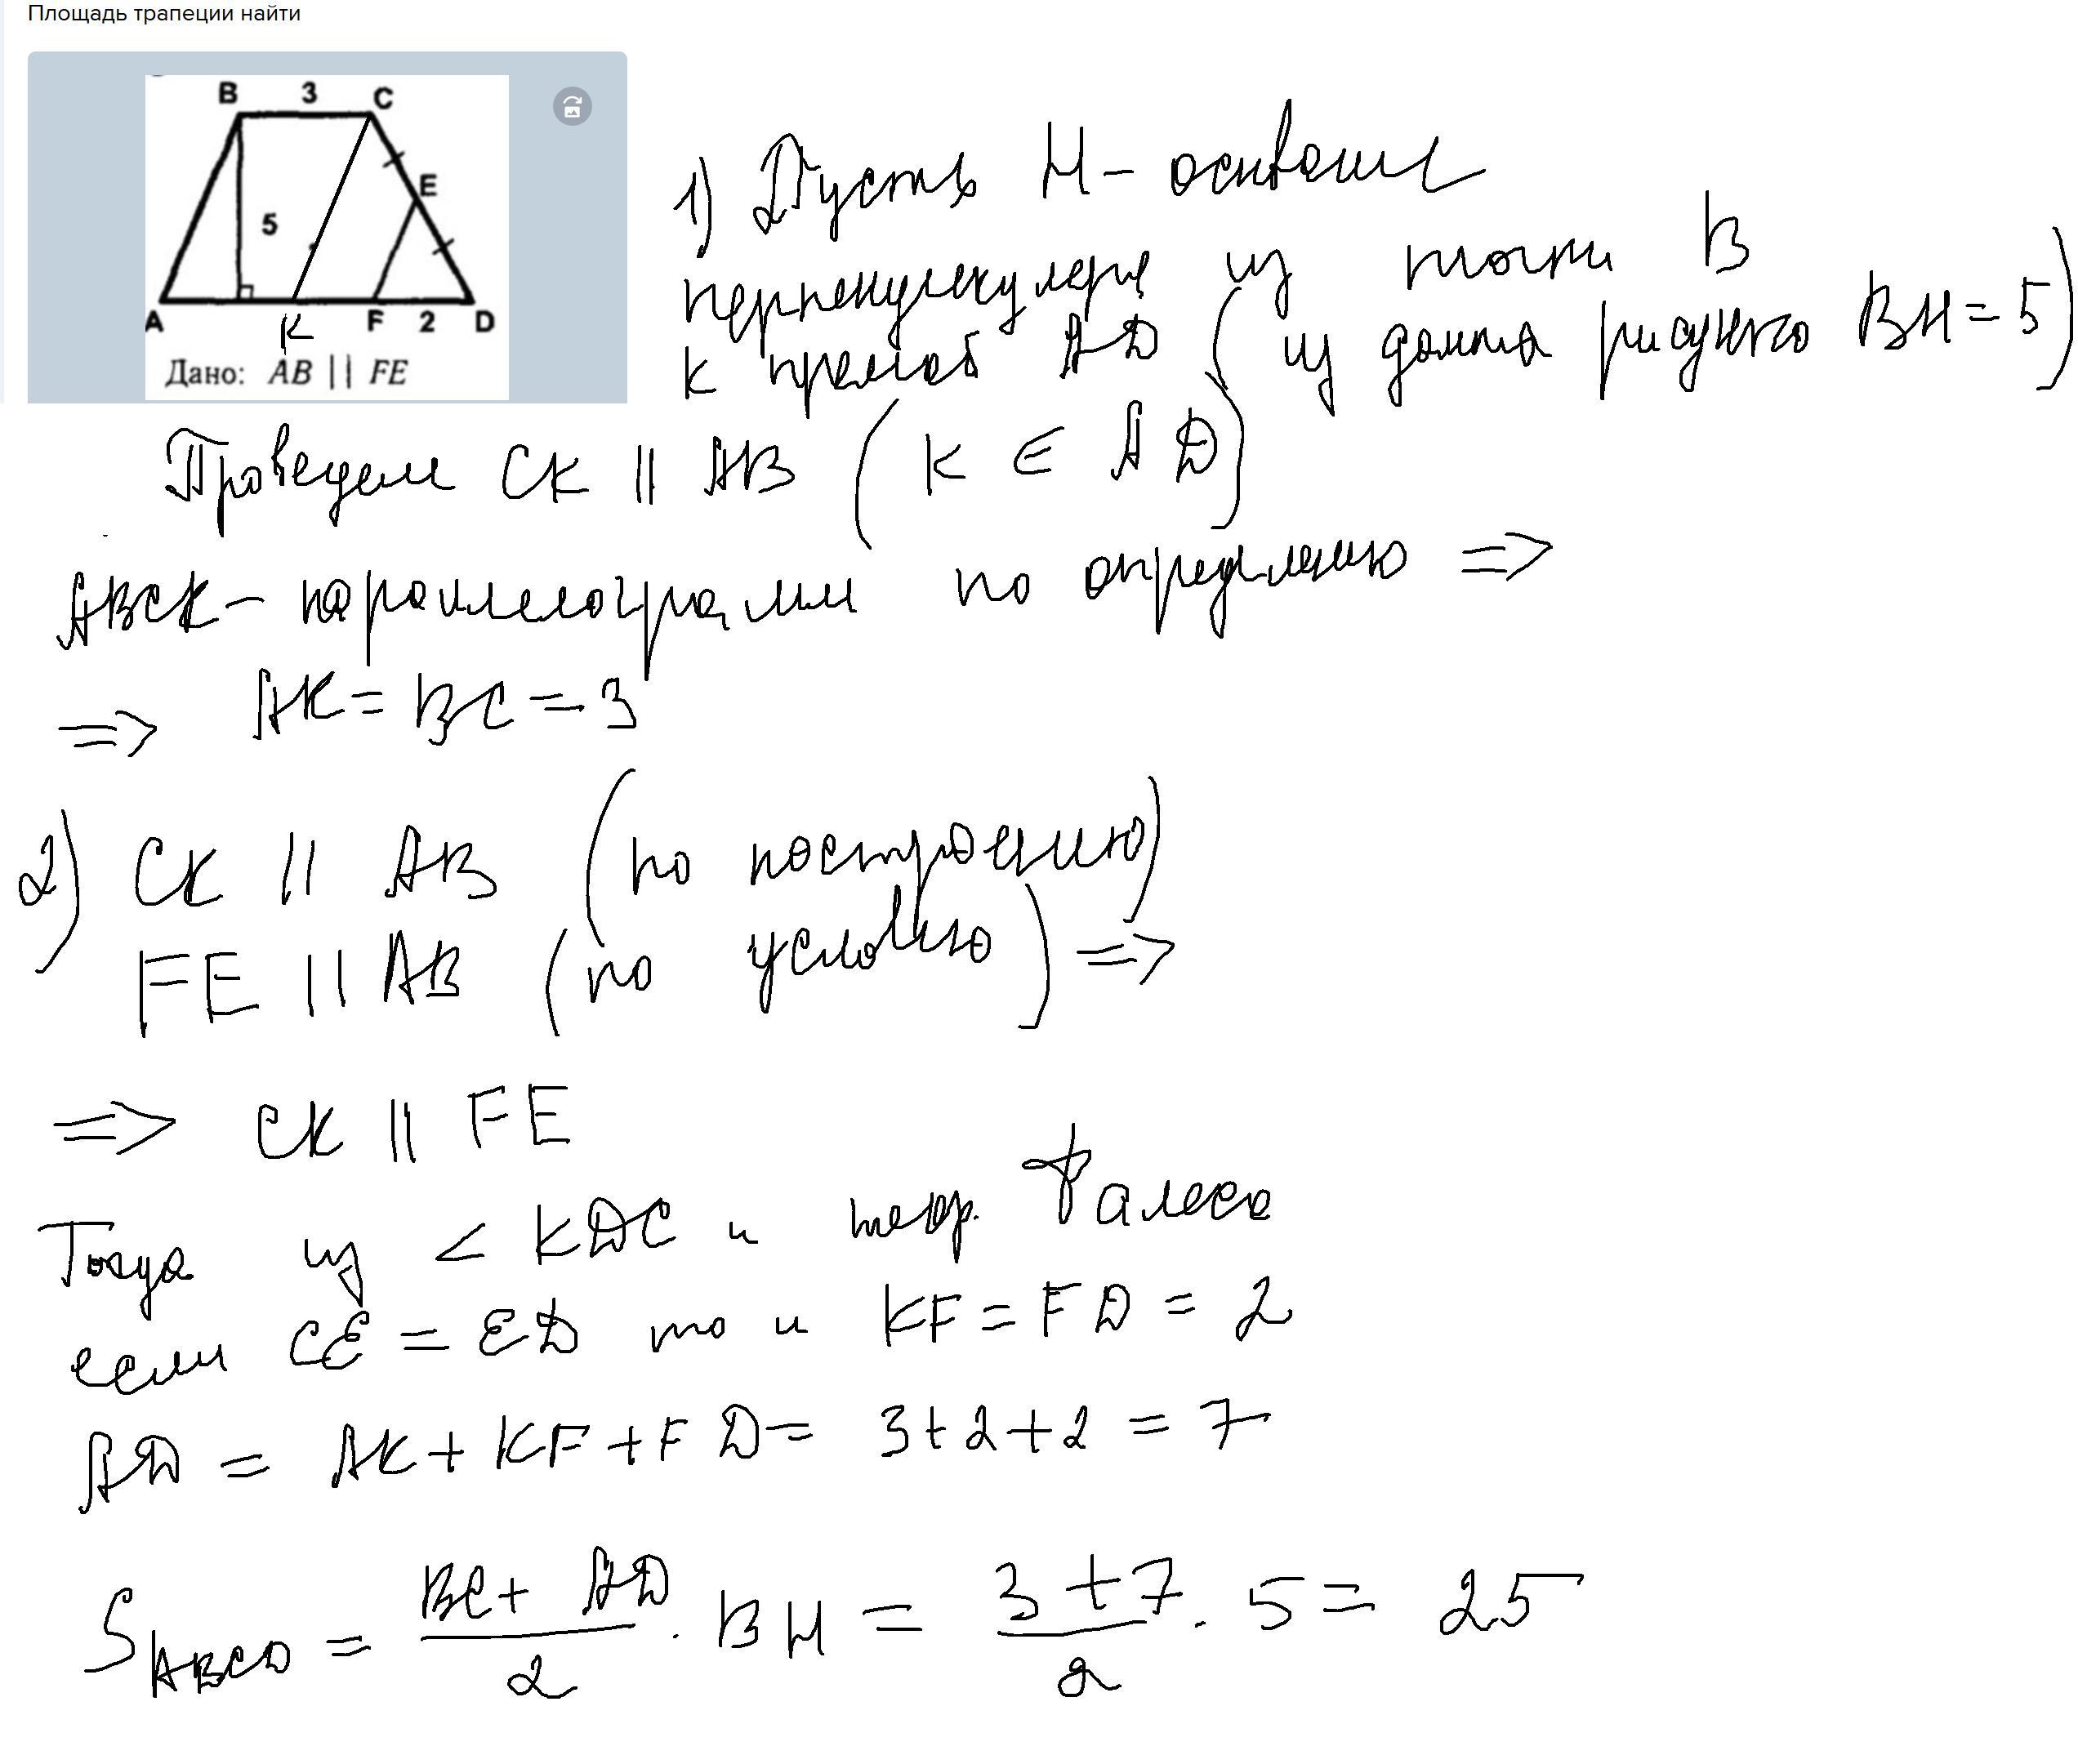 Площадь трапеции найти
B 3 C
E
5
A K F 2 D
Дано: AB || FE
1) Пусть H - основание
перпендикуляра из точки B
к прямой AD (из данного рисунка BH = 5)
Проведем CK || AB (K ∈ AD)
ABCK - параллелограмм по определению =>
=> AK = BC = 3
2) CK || AB (по построению)
FE || AB (по условию) =>
=> CK || FE
Тогда из < KDC и теор. Фалеса
если CE = ED то и KF = FD = 2
AD = AK + KF + FD = 3 + 2 + 2 = 7
S ABCD = (BC + AD)/2 · BH = (3 + 7)/2 · 5 = 25